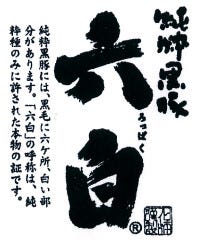 純粋黒豚
六白
ろっぱく
®
純粋黒豚には、黒毛に六ケ所、白い部
分があります。「六白」の呼称は、純
粋種のみに許された本物の証です。